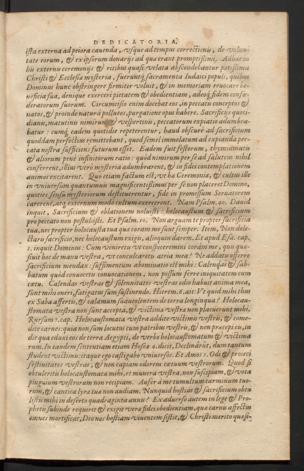 DEDICATORIA.
ista externa ad priora cauenda, vsque ad tempus correctionis, de volun
tate eorum, & ex ipsorum donarijs ad qua erant promptissimi. Adhuc in
his externis ceremonijs & ritibus quasi velata abscondebantur potissima
Christi & Ecclesiæ mysteria, fuerunt sacramenta Iudaici populi, quibus
Dominus hunc obstringeret firmiter vidit, & in memoriam reuocaret be-
neficia sua, denique exerceret pietatem & obedientiam, adeoque fidem confœ-
deratorum suorum. Circumcisio enim docebat eos, in peccatis conceptos &
natos, & proinde natura pollutos, purgari ope habere. Sacrificio quoti-
diano, matutino nimirum & vespertino, peccatorum expiatio adumbra-
batur: cumque eadem quotidie repeterentur, haud obscurè ad sacrificium
quoddam perfectum remittebant, quod semel immolatum ad expianda pec-
cata nostra sufficiens futurum esset. Eadem fuit festorum, thymiamatis
& aliorum prius institutorum ratio: quòd nimirum per se ad salutem nihil
conferrent, situ verò mysteria adumbrarent, & in fidei contemplatione
animos excitarent. Quo etiam factum est, vt ea Ceremonia, & cultus ille
in vniuersum quantumuis magnificentissimus per se non placeret Domino,
quoties sensu mysteriorum destituerentur, fide in promissum Seruatorem
carerent, atque externum modò cultum exercerent. Nam Psalm. 40. Dauid
inquit, Sacrificium & oblationem noluisti: holocaustum & sacrificium
pro peccato non postulasti. Et Psalm. 50. Non arguam te propter sacrificia
tua, nec propter holocausta tua quæ coram me sunt semper. Item, Non dele-
ctaris sacrificio, nec holocaustum exigis, alioquin darem. Et apud Esa. cap.
1. inquit Dominus: Cum veneritis vt conspiceremini coram me, quis quæ-
siuit hoc de manu vestra, vt conculcaretis atria mea? Ne addatis offerre
sacrificium mendax: suffimentum abominatio est mihi: Calendas & sab-
batum quod conuocetis conuocationem, non possum ferre iniquitatem cum
cœtu. Calendas vestras & solennitates vestras odio habuit anima mea,
sunt mihi oneri, fatigatus sum sustinendo. Et Ierem. 6. ait: Vt quid mihi thus
ex Saba affertis, & calamum suauiolentem de terra longinqua? Holocau-
stomata vestra non sunt accepta, & victima vestra non placuerunt mihi.
Rursum 7. cap. Holocaustomata vestra addite victimis vestris, & come-
dite carnes: quia non sum locutus cum patribus vestris, & non præcepi eis, in
die qua eduxi eos de terra Aegypti, de verbis holocaustomatum & victima
rum. In eandem sententiam etiam Hoseæ 6. dixit, Declinârūt, etiam tantum
student victimis: itaque ego castigabo vniuersos. Et Amos 5. Odi & proieci
festiuitates vestras, & non capiam odorem cœtuum vestrorum. Quod si
obtuleritis holocaustomata mihi, et munera vestra, non suscipiam, & vota
pinguium vestrorum non recipiam. Aufer à me tumultum carminum tuo-
rum, & cantica lyræ tuæ non audiam. Nunquid hostias & sacrificium obtu
listis mihi in deserto quadraginta annis? Ex aduerso autem in lege & Pro-
phetis subinde requirit & exigit vera fidei obedientiam, quæ carnis affectus
omnes mortificat, Deoque hostiam viuentem sistit, & Christi merito quæsi-